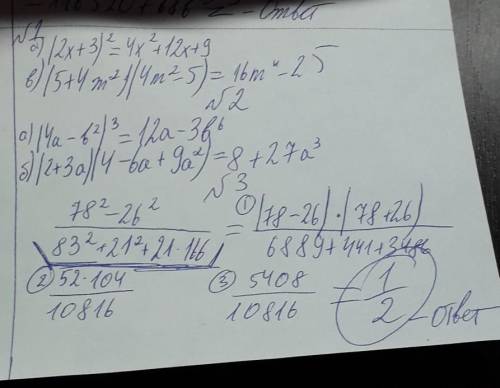 - Ответ
№1
а) (2x+3)² = 4x² + 12x + 9
в) (5+4m²)(4m²-5) = 16m⁴ - 25
№2
а) (4a - b²)³ = 12a - 3b⁶
б) (2+3a)(4 - 6a + 9a²) = 8 + 27a³
№3
78² - 26² / 83² + 21² + 21·166 = ① (78-26)·(78+26) / 6889 + 441 + 3486
② 52·104 / 10816 ③ 5408 / 10816 = 1/2 - ответ